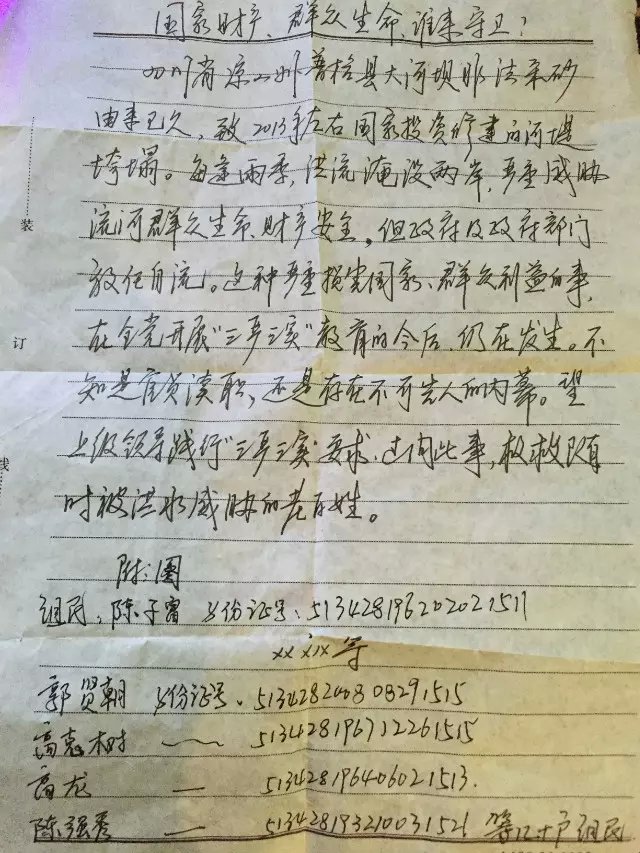 国家财产、群众生命、谁来守卫？
四川省凉山州普格县大河坝非法采砂
由来已久，致2013年左右国家投资修建的河堤
垮塌。每逢雨季，洪流淹没两岸，严重威胁
流河群众生命、财产安全，但政府及政府部门
放任自流。这种严重损害国家、群众利益的事，
在全党开展"三严三实"教育的今后、仍在发生。不
知是官员渎职、还是存在不可告人的内幕。望
上级领导践行"三严三实"要求、过问此事，拯救随
时被洪水威胁的老百姓。
附：图
组民：陈子富 身份证号：513428196202021511
xx xix 等
郭贤朝 身份证号：
高 树
高龙 — 513428196406021513.
陈强秀 — 513428193210031521 等 户组民
装
订
线